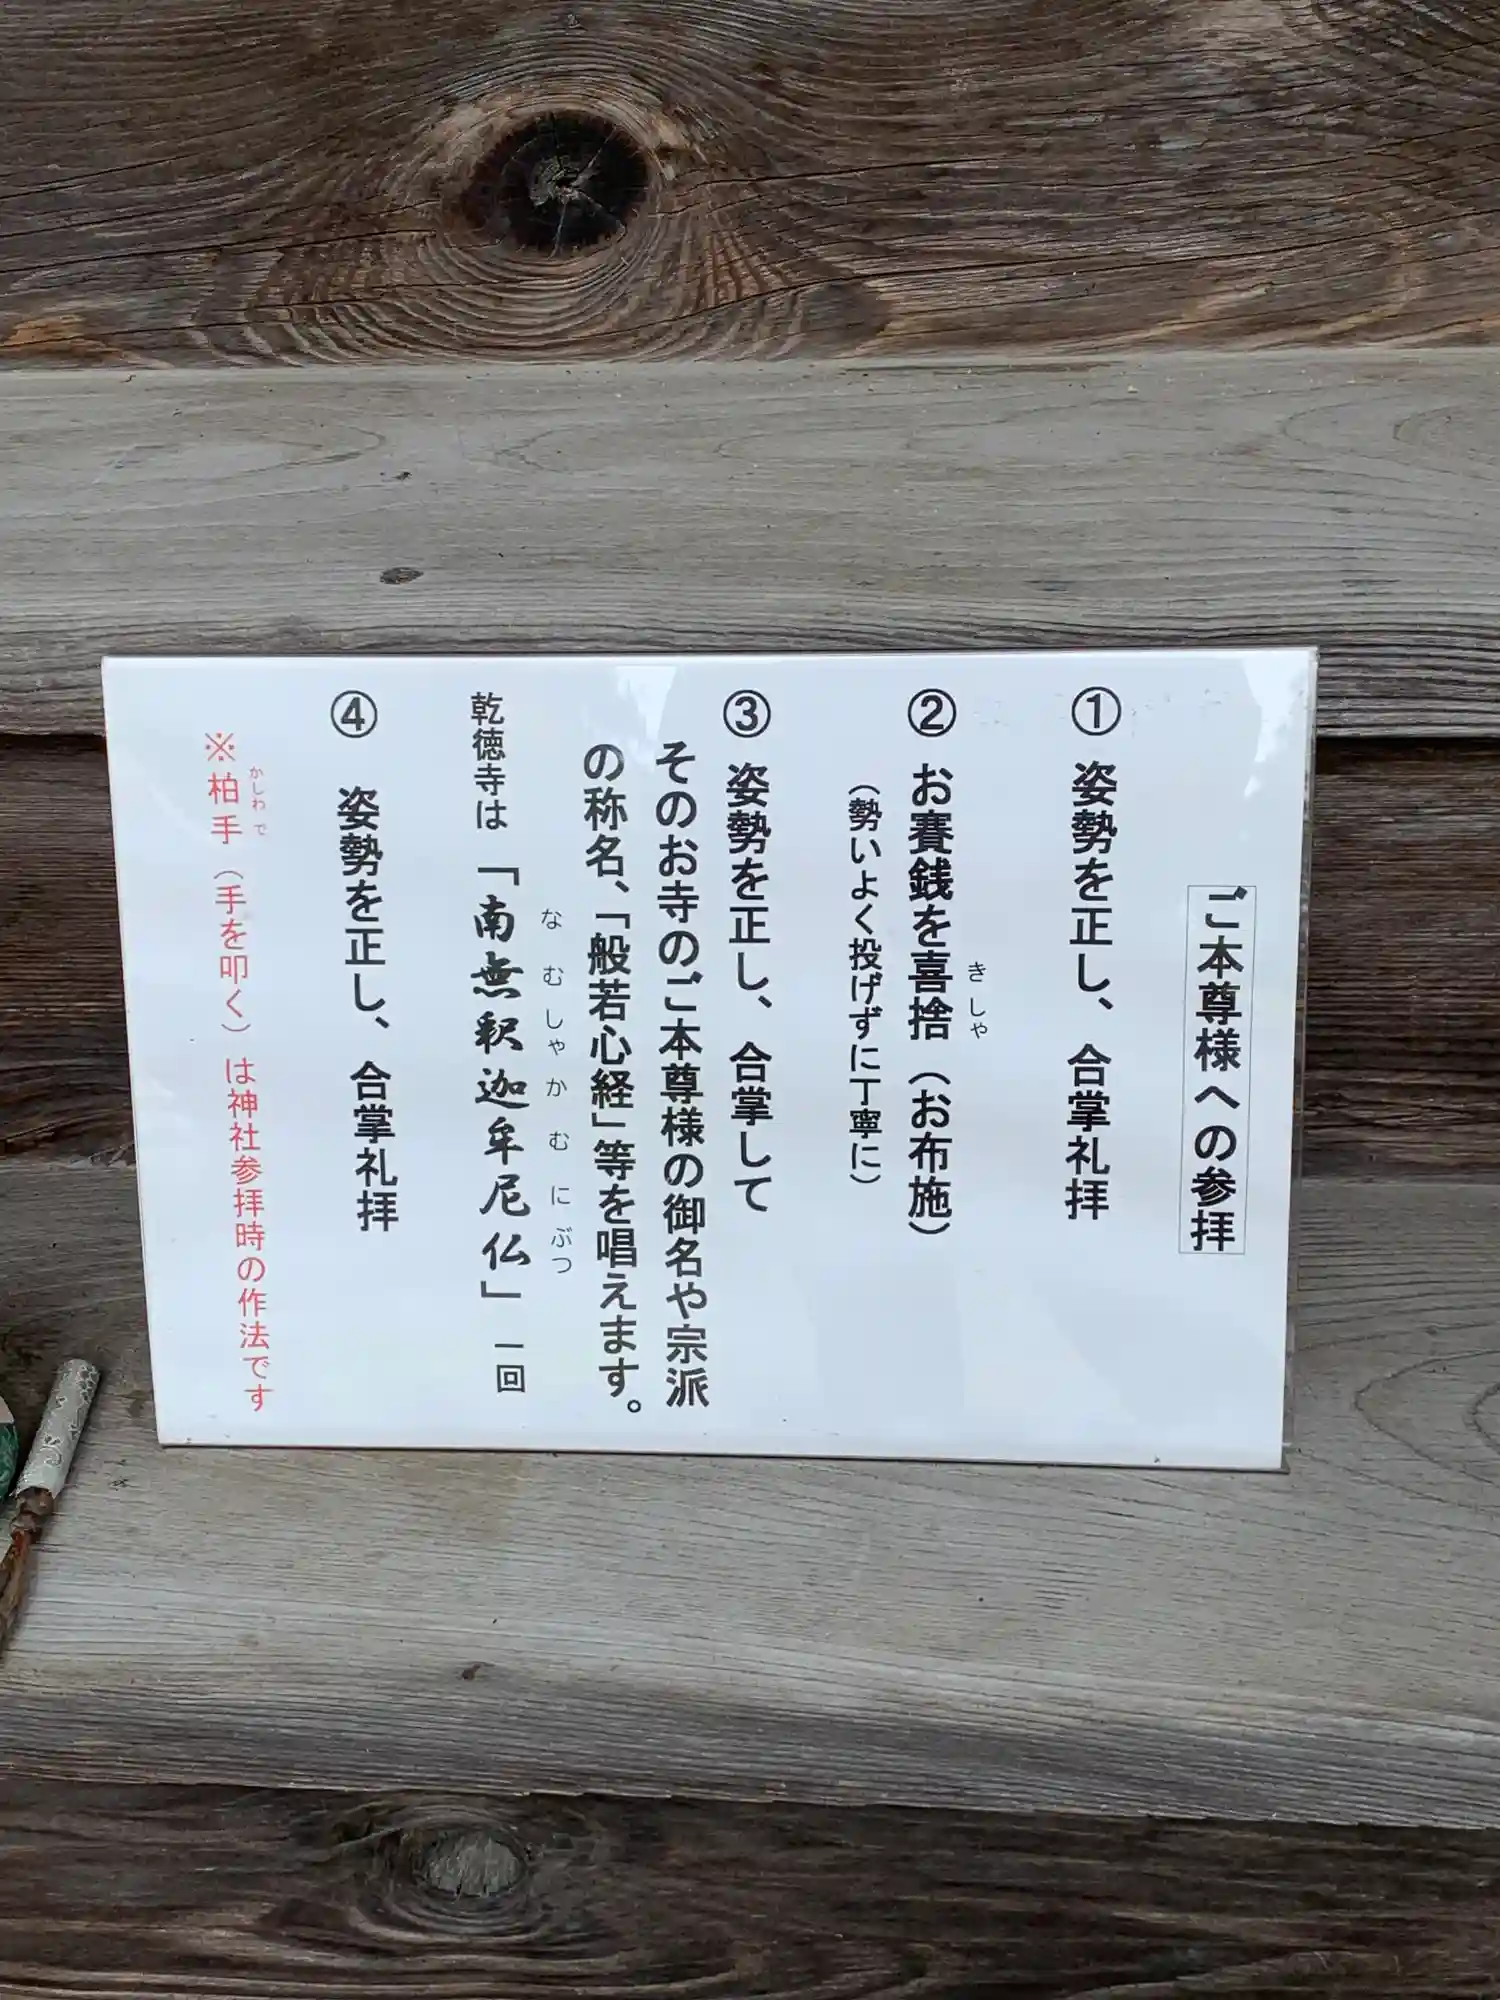 ご本尊様への参拝
① 姿勢を正し、合掌礼拝
② お賽銭を喜捨（お布施）
きしゃ
（勢いよく投げずに丁寧に）
③ 姿勢を正し、合掌して
そのお寺のご本尊様の御名や宗派
の称名、「般若心経」等を唱えます。
なむしゃかむにぶつ
乾徳寺は「南無釈迦牟尼仏」一回
④ 姿勢を正し、合掌礼拝
かしわで
※柏手（手を叩く）は神社参拝時の作法です